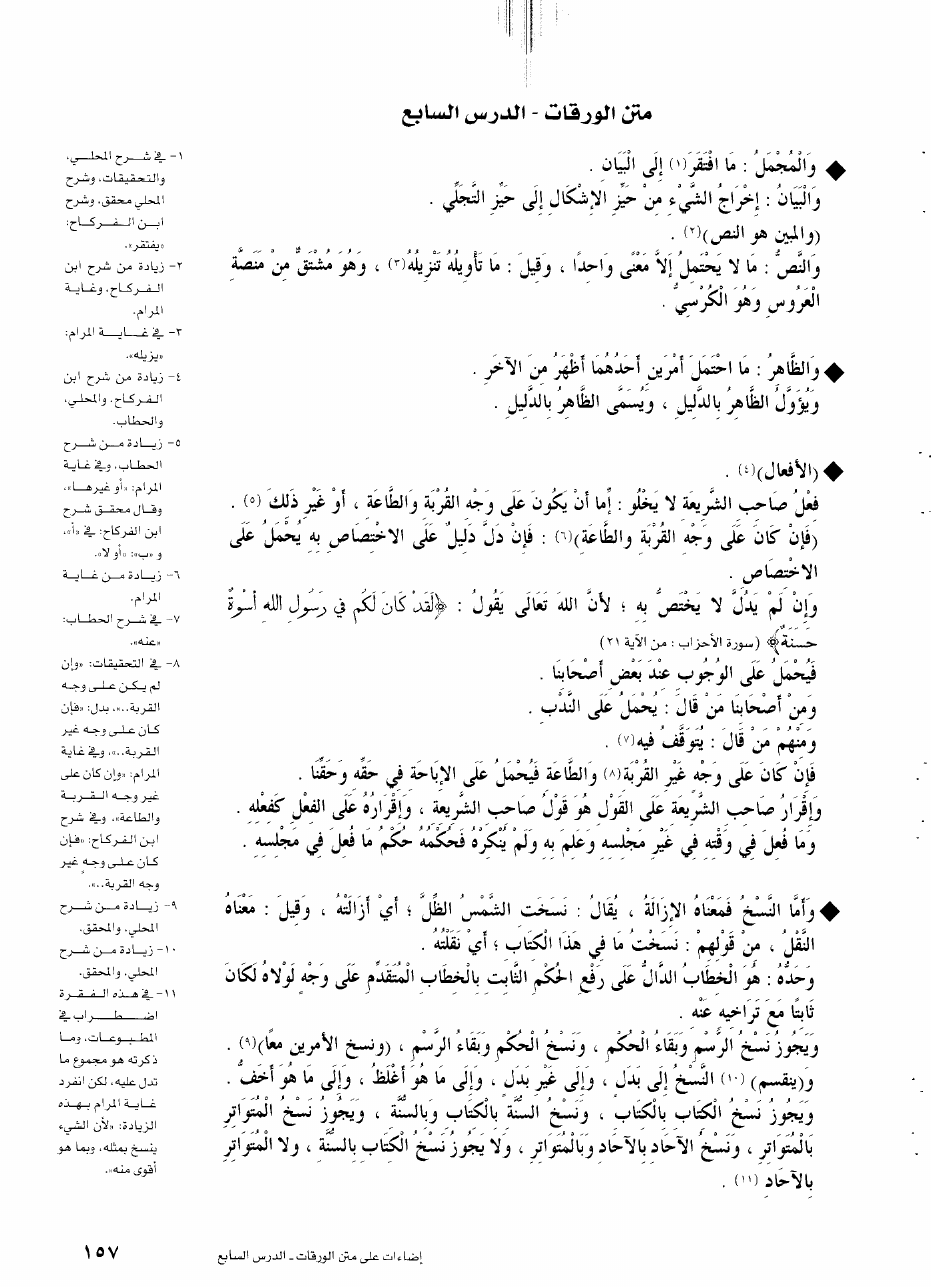 متن الورقات - الدرس السابع
◆ وَالْمُجْمَلُ : مَا افْتَقَرَ(١) إِلَى الْبَيَانِ .
وَالْبَيَانُ : إِخْرَاجُ الشَّيْءِ مِنْ حَيِّزِ الإِشْكَالِ إِلَى حَيِّزِ التَّجَلِّي .
(والمبين هو النص)(٢) .
وَالنَّصُّ : مَا لا يَحْتَمِلُ إِلاَّ مَعْنًى وَاحِدًا ، وَقِيلَ : مَا تَأْوِيلُهُ تَنْزِيلُهُ(٣) ، وَهُوَ مُشْتَقٌّ مِنْ مَنَصَّةِ
الْعَرُوسِ وَهُوَ الْكُرْسِيُّ .
◆ وَالظَّاهِرُ : مَا احْتَمَلَ أَمْرَينِ أَحَدُهُمَا أَظْهَرُ مِنَ الآخَرِ .
وَيُؤَوَّلُ الظَّاهِرُ بِالدَّلِيلِ ، وَيُسَمَّى الظَّاهِرُ بِالدَّلِيلِ .
◆ (الأفعال)(٤) .
فِعْلُ صَاحِبِ الشَّرِيعَةِ لا يَخْلُو : إِمَّا أَنْ يَكُونَ عَلَى وَجْهِ القُرْبَةِ وَالطَّاعَةِ ، أَوْ غَيْرِ ذَلِكَ (٥) .
(فَإِنْ كَانَ عَلَى وَجْهِ القُرْبَةِ والطَّاعَةِ)(٦) : فَإِنْ دَلَّ دَلِيلٌ عَلَى الاخْتِصَاصِ بِهِ يُحْمَلُ عَلَى
الاخْتِصَاصِ .
وَإِنْ لَمْ يَدُلَّ لا يَخْتَصُّ بِهِ ؛ لأَنَّ اللهَ تَعَالَى يَقُولُ : ﴿لَقَدْ كَانَ لَكُمْ فِي رَسُولِ اللهِ أُسْوَةٌ
حَسَنَةٌ﴾ (سورة الأحزاب : من الآية ٢١)
فَيُحْمَلُ عَلَى الوُجُوبِ عِنْدَ بَعْضِ أَصْحَابِنَا .
وَمِنْ أَصْحَابِنَا مَنْ قَالَ : يُحْمَلُ عَلَى النَّدْبِ .
وَمِنْهُمْ مَنْ قَالَ : يُتَوَقَّفُ فِيهِ(٧) .
فَإِنْ كَانَ عَلَى وَجْهِ غَيْرِ القُرْبَةِ(٨) وَالطَّاعَةِ فَيُحْمَلُ عَلَى الإِبَاحَةِ فِي حَقِّهِ وَحَقِّنَا .
وَإِقْرَارُ صَاحِبِ الشَّرِيعَةِ عَلَى القَوْلِ هُوَ قَوْلُ صَاحِبِ الشَّرِيعَةِ ، وَإِقْرَارُهُ عَلَى الفِعْلِ كَفِعْلِهِ .
وَمَا فُعِلَ فِي وَقْتِهِ فِي غَيْرِ مَجْلِسِهِ وَعَلِمَ بِهِ وَلَمْ يُنْكِرْهُ فَحُكْمُهُ حُكْمُ مَا فُعِلَ فِي مَجْلِسِهِ .
◆ وَأَمَّا النَّسْخُ فَمَعْنَاهُ الإِزَالَةُ ، يُقَالُ : نَسَخَتِ الشَّمْسُ الظِّلَّ ؛ أَيْ أَزَالَتْهُ ، وَقِيلَ : مَعْنَاهُ
النَّقْلُ ، مِنْ قَوْلِهِمْ : نَسَخْتُ مَا فِي هَذَا الْكِتَابِ ؛ أَيْ نَقَلْتُهُ .
وَحَدُّهُ : هُوَ الْخِطَابُ الدَّالُّ عَلَى رَفْعِ الحُكْمِ الثَّابِتِ بِالْخِطَابِ الْمُتَقَدِّمِ عَلَى وَجْهٍ لَوْلاهُ لَكَانَ
ثَابِتًا مَعَ تَرَاخِيهِ عَنْهُ .
وَيَجُوزُ نَسْخُ الرَّسْمِ وَبَقَاءُ الْحُكْمِ ، وَنَسْخُ الْحُكْمِ وَبَقَاءُ الرَّسْمِ ، (ونسخ الأمرين معاً)(٩) .
وَ(ينقسم) (١٠) النَّسْخُ إِلَى بَدَلٍ ، وَإِلَى غَيْرِ بَدَلٍ ، وَإِلَى مَا هُوَ أَغْلَظُ ، وَإِلَى مَا هُوَ أَخَفُّ .
وَيَجُوزُ نَسْخُ الْكِتَابِ بِالْكِتَابِ ، وَنَسْخُ السُّنَّةِ بِالْكِتَابِ وَبِالسُّنَّةِ ، وَيَجُوزُ نَسْخُ الْمُتَوَاتِرِ
بِالْمُتَوَاتِرِ ، وَنَسْخُ الآحَادِ بِالآحَادِ وَبِالْمُتَوَاتِرِ ، وَلا يَجُوزُ نَسْخُ الْكِتَابِ بِالسُّنَّةِ ، وَلا الْمُتَوَاتِرِ
بِالآحَادِ (١١) .
١- في شرح المحلي،
والتحقيقات، وشرح
المحلي محقق، وشرح
ابن الفركاح:
«يفتقر».
٢- زيادة من شرح ابن
الفركاح، وغاية
المرام.
٣- في غاية المرام:
«يزيله».
٤- زيادة من شرح ابن
الفركاح، والمحلي،
والحطاب.
٥- زيادة من شرح
الحطاب، وفي غاية
المرام: «أو غيرها»،
وقال محقق شرح
ابن الفركاح: في «أ»،
و «ب»: «أو لا».
٦- زيادة من غاية
المرام.
٧- في شرح الحطاب:
«عنه».
٨- في التحقيقات: «وإن
لم يكن على وجه
القربة..»، بدل: «فإن
كان على وجه غير
القربة..»، وفي غاية
المرام: «وإن كان على
غير وجه القربة
والطاعة»، وفي شرح
ابن الفركاح: «فإن
كان على وجهٍ غير
وجه القربة..».
٩- زيادة من شرح
المحلي، والمحقق.
١٠- زيادة من شرح
المحلي، والمحقق.
١١- في هذه الفقرة
اضطراب في
المطبوعات، وما
ذكرته هو مجموع ما
تدل عليه، لكن انفرد
غاية المرام بهذه
الزيادة: «لأن الشيء
ينسخ بمثله، وبما هو
أقوى منه».
إضاءات على متن الورقات - الدرس السابع
١٥٧